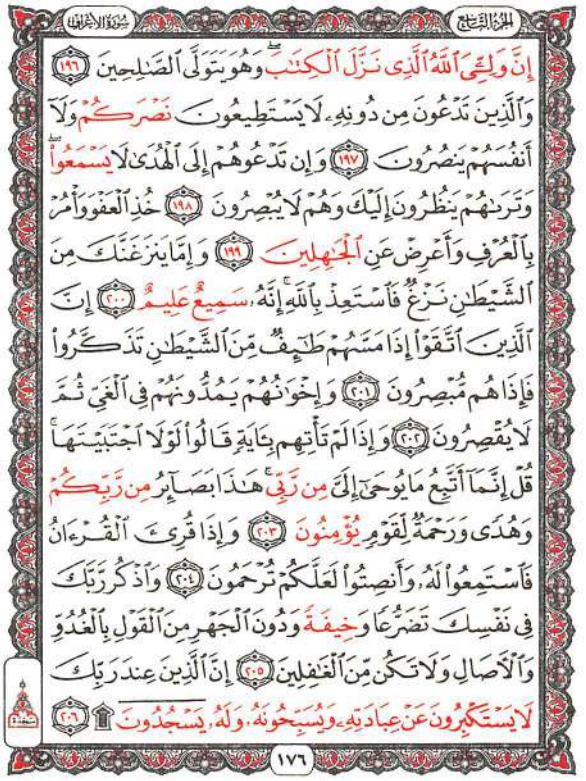 الجزء التاسع
سورة الأعراف
إِنَّ وَلِـِّۧيَ ٱللَّهُ ٱلَّذِى نَزَّلَ ٱلْكِتَـٰبَ ۖ وَهُوَ يَتَوَلَّى ٱلصَّـٰلِحِينَ ١٩٦
وَٱلَّذِينَ تَدْعُونَ مِن دُونِهِۦ لَا يَسْتَطِيعُونَ نَصْرَكُمْ وَلَآ
أَنفُسَهُمْ يَنصُرُونَ ١٩٧ وَإِن تَدْعُوهُمْ إِلَى ٱلْهُدَىٰ لَا يَسْمَعُوا۟ ۖ
وَتَرَىٰهُمْ يَنظُرُونَ إِلَيْكَ وَهُمْ لَا يُبْصِرُونَ ١٩٨ خُذِ ٱلْعَفْوَ وَأْمُرْ
بِٱلْعُرْفِ وَأَعْرِضْ عَنِ ٱلْجَـٰهِلِينَ ١٩٩ وَإِمَّا يَنزَغَنَّكَ مِنَ
ٱلشَّيْطَـٰنِ نَزْغٌ فَٱسْتَعِذْ بِٱللَّهِ ۚ إِنَّهُۥ سَمِيعٌ عَلِيمٌ ٢٠٠ إِنَّ
ٱلَّذِينَ ٱتَّقَوْا۟ إِذَا مَسَّهُمْ طَـٰٓئِفٌ مِّنَ ٱلشَّيْطَـٰنِ تَذَكَّرُوا۟
فَإِذَا هُم مُّبْصِرُونَ ٢٠١ وَإِخْوَٰنُهُمْ يَمُدُّونَهُمْ فِى ٱلْغَىِّ ثُمَّ
لَا يُقْصِرُونَ ٢٠٢ وَإِذَا لَمْ تَأْتِهِم بِـَٔايَةٍ قَالُوا۟ لَوْلَا ٱجْتَبَيْتَهَا ۚ
قُلْ إِنَّمَآ أَتَّبِعُ مَا يُوحَىٰٓ إِلَىَّ مِن رَّبِّى ۚ هَـٰذَا بَصَآئِرُ مِن رَّبِّكُمْ
وَهُدًى وَرَحْمَةٌ لِّقَوْمٍ يُؤْمِنُونَ ٢٠٣ وَإِذَا قُرِئَ ٱلْقُرْءَانُ
فَٱسْتَمِعُوا۟ لَهُۥ وَأَنصِتُوا۟ لَعَلَّكُمْ تُرْحَمُونَ ٢٠٤ وَٱذْكُر رَّبَّكَ
فِى نَفْسِكَ تَضَرُّعًا وَخِيفَةً وَدُونَ ٱلْجَهْرِ مِنَ ٱلْقَوْلِ بِٱلْغُدُوِّ
وَٱلْـَٔاصَالِ وَلَا تَكُن مِّنَ ٱلْغَـٰفِلِينَ ٢٠٥ إِنَّ ٱلَّذِينَ عِندَ رَبِّكَ
لَا يَسْتَكْبِرُونَ عَنْ عِبَادَتِهِۦ وَيُسَبِّحُونَهُۥ وَلَهُۥ يَسْجُدُونَ ۩ ٢٠٦
سجدة
١٧٦